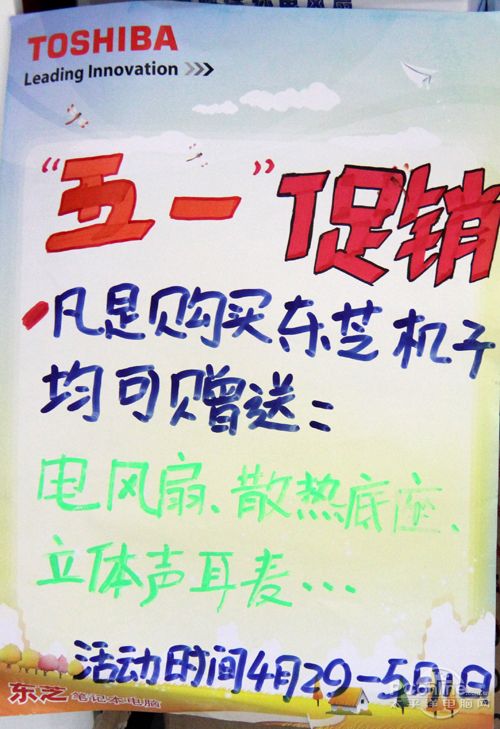 TOSHIBA
Leading Innovation >>>
“五一”促销
凡是购买东芝机子
均可赠送：
电风扇、散热底座、
立体声耳麦...
活动时间4月29-5月1日
东芝笔记本电脑
太平洋电脑网